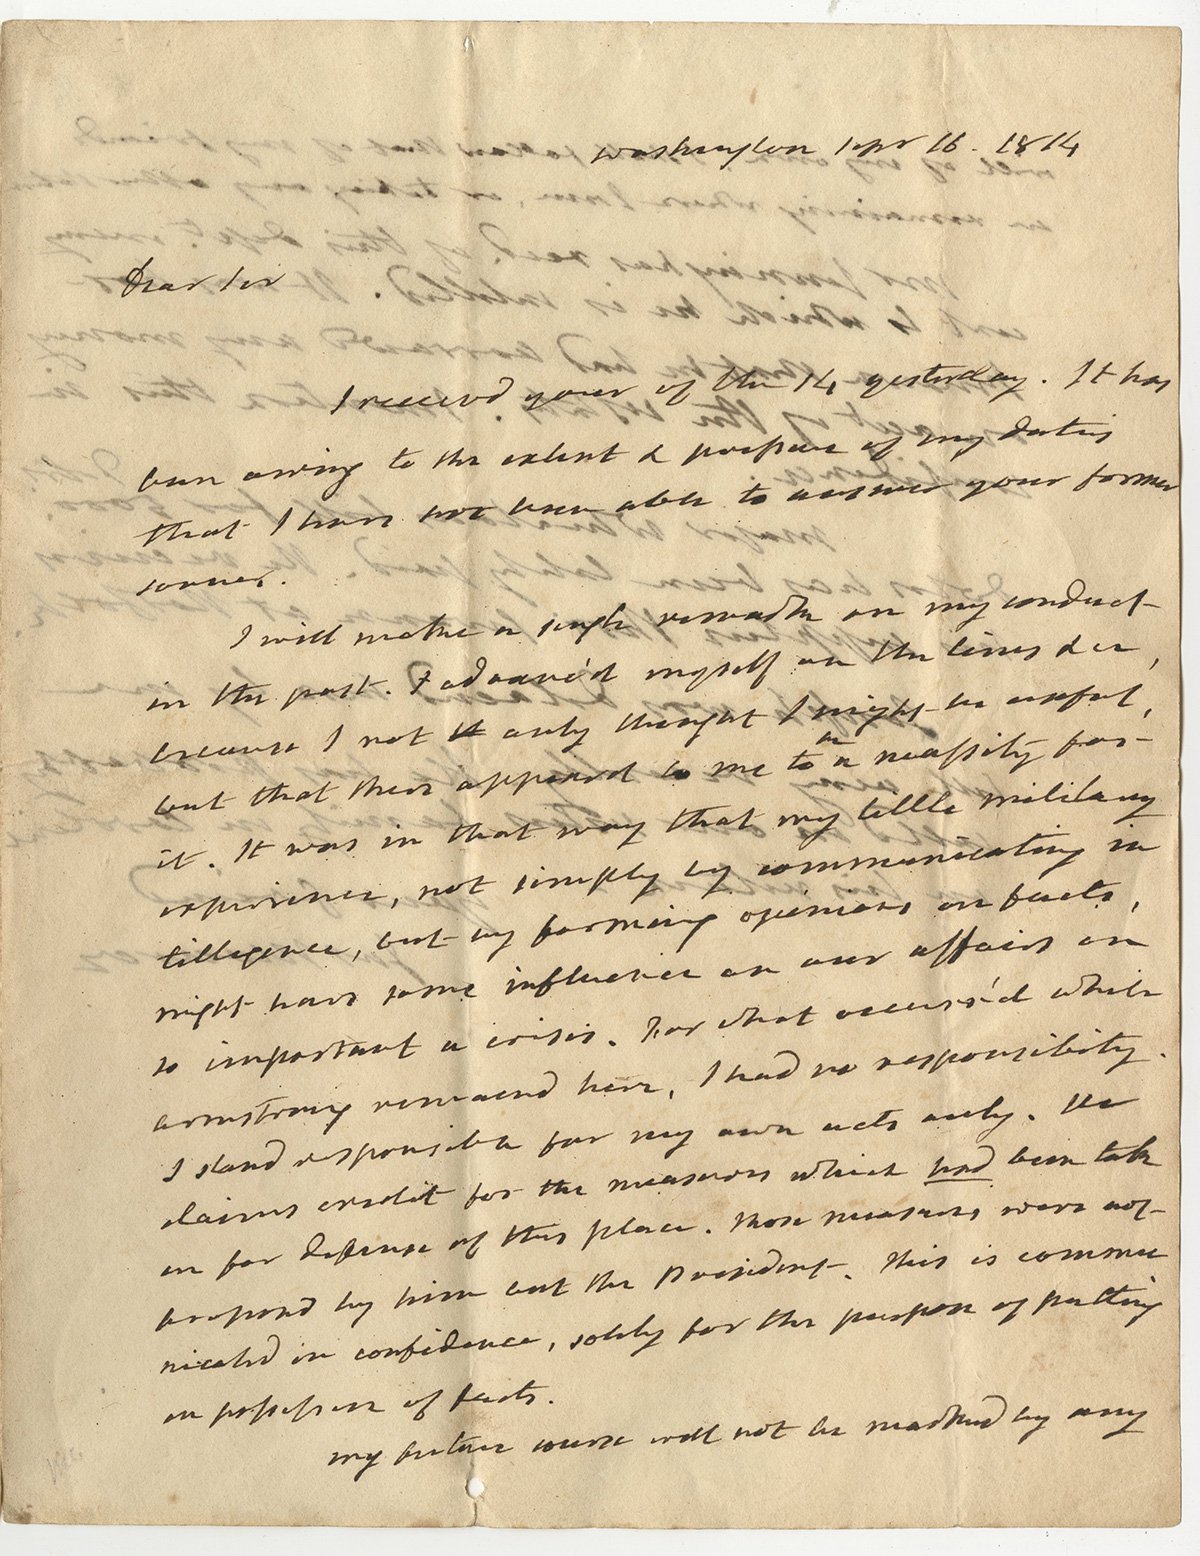 Washington Sepr 16. 1814
Dear Sir
I received your of the 14 yesterday. It has
been owing to the extent & pressure of my duties
that I have not been able to answer your former
sooner.
I will make a single remark on my conduct
in the past. I advanc'd myself on the lines &ca,
because I not only thought I might be useful,
but that there appeard to me to be a necessity for
it. It was in that way that my little military
experience, not simply by communicating in
telligence, but by forming opinions on facts,
might have some influence on our affairs on
so important a crisis. For what occurr'd while
Armstrong remaind here, I had no responsibility.
I stand responsible for my own acts only. He
claims credit for the measures which had been tak
en for defense of this place. Those measures were not
proposd by him but the President. This is commu
nicated in confidence, solely for the purpose of putting
in possession of facts.
My future course will not be marked by any